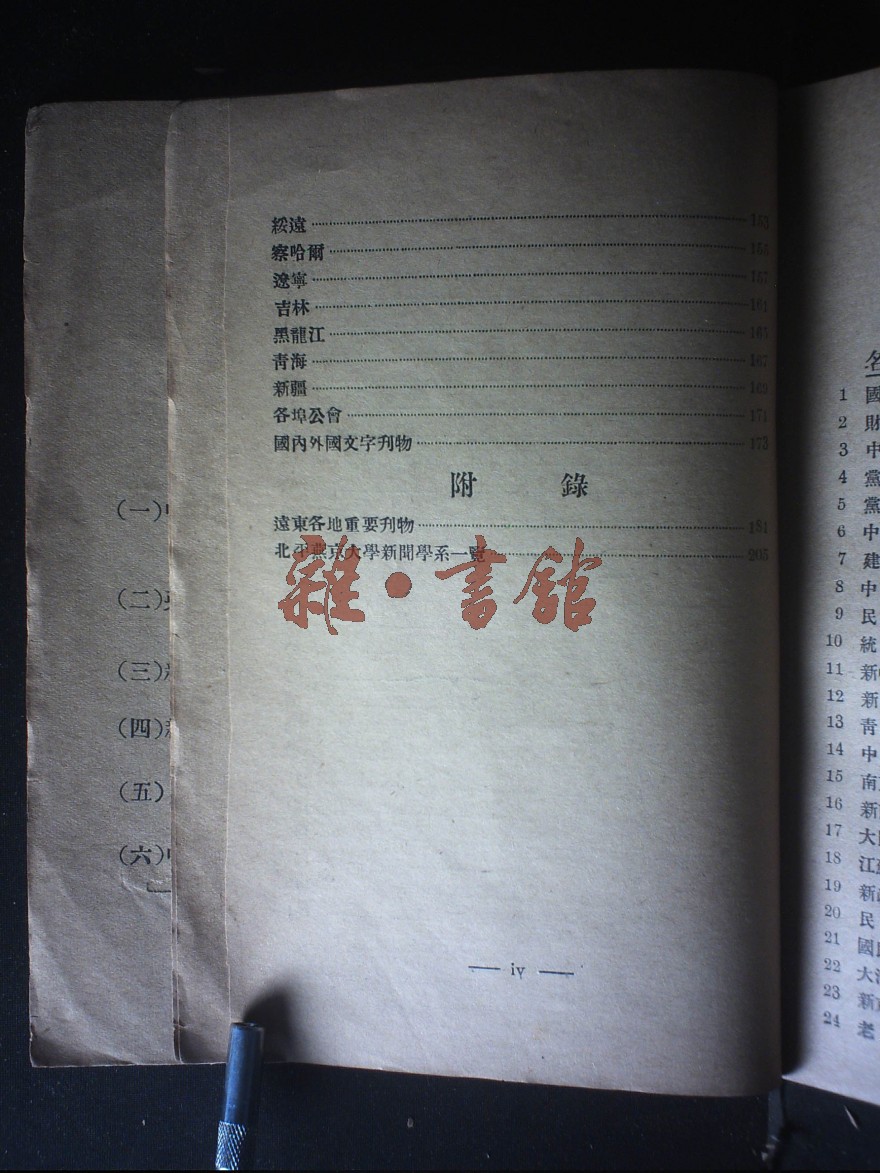 綏遠 153
察哈爾 155
遼寧 157
吉林 161
黑龍江 165
靑海 167
新疆 169
各埠公會 171
國內外國文字刋物 173
附錄
遠東各地重要刋物 181
北平燕京大學新聞學系一覽 205
雜·書館
— iv —
(一)
(二)
(三)
(四)
(五)
(六)
名
1 國
2 財
3 中
4 黨
5 黨
6 中
7 建
8 中
9 民
10 統
11 新
12 新
13 靑
14 中
15 南
16 新
17 大
18 江
19 新
20 民
21 國
22 大
23 新
24 老